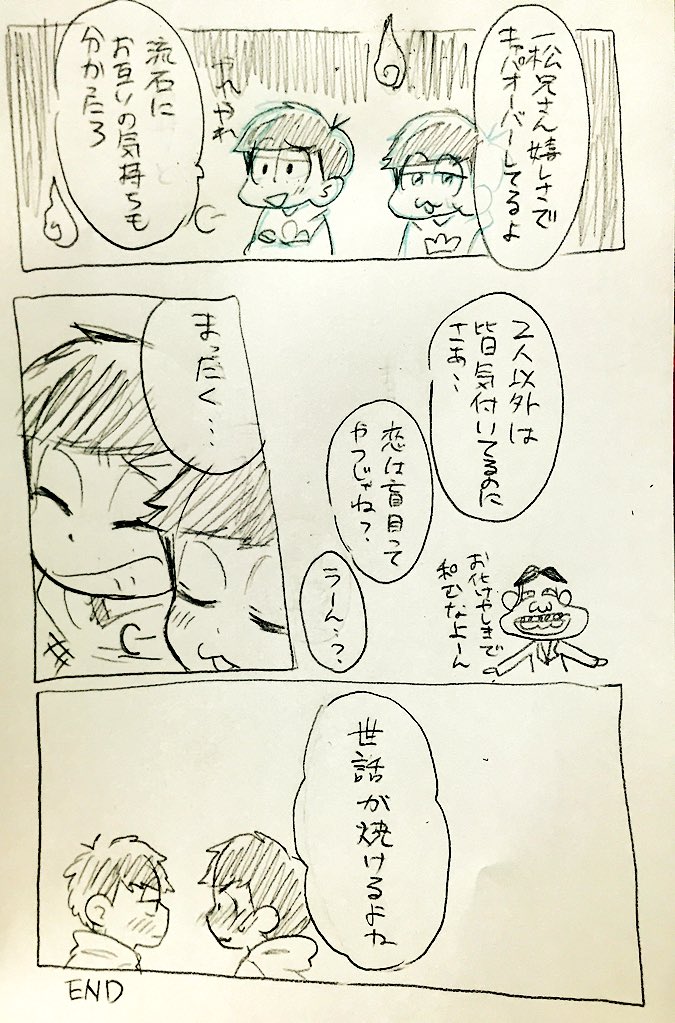 一松兄さん嬉しさで
キャパオーバーしてるよ
やれやれ
流石に
お互いの気持ちも
分かったろ
2人以外は
皆気付いてるのに
さぁ…
恋は盲目って
やつじゃね？
うーん…？
お化けやしきで
和むなよーん
まったく…
世話が焼けるよね
END